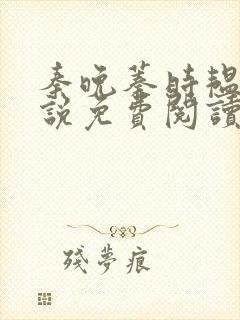 秦晚蓁時韞
說免費閱讀
殘夢痕